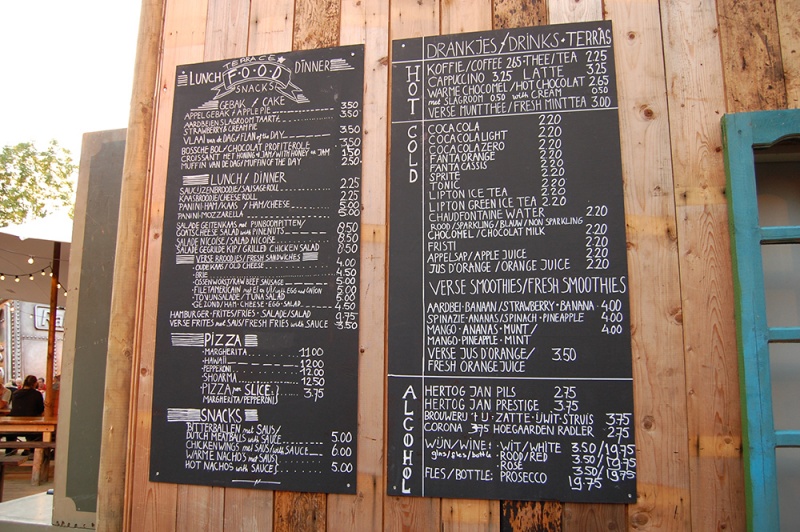 TERRACE
LUNCH FOOD DINNER
SNACKS
GEBAK / CAKE
APPELGEBAK / APPLE PIE 3.50
AARDBEIEN SLAGROOM TAARTE
STRAWBERRY & CREAM PIE 3.50
VLAAI van de DAG / FLAN of the DAY
BOSSCHE BOL / CHOCOLAT PROFITEROLE
CROISSANT MET HONING of JAM / WITH HONEY or JAM 1.50
MUFFIN VAN DE DAG / MUFFIN OF THE DAY 2.50
LUNCH / DINNER
SAUCIJZENBROODJE / SAUSAGE ROLL 2.25
KAASBROODJE / CHEESE ROLL 2.25
PANINI HAM / KAAS / HAM / CHEESE 5.00
PANINI-MOZZARELLA 5.00
SALADE GEITENKAAS met PIJNBOOMPITTEN /
GOATSCHEESE SALAD with PINENUTS 8.50
SALADE NICOISE / SALAD NICOISE 8.50
SALADE GEGRILDE KIP / GRILLED CHICKEN SALAD 8.50
VERSE BROODJES / FRESH SANDWICHES
- OUDE KAAS / OLD CHEESE 4.00
- BRIE 4.50
- OSSENWORST / RAW BEEF SAUSAGE 5.00
- FILET AMERICAIN met EI en UI / with EGG and ONION 5.00
- TONIJNSALADE / TUNA SALAD 5.00
- GEZOND / HAM - CHEESE - EGG - SALAD 4.50
HAMBURGER - FRITES / FRIES - SALADE / SALAD 9.75
VERSE FRITES met SAUS / FRESH FRIES with SAUCE 3.50
PIZZA
- MARGHERITA 11.00
- HAWAII 12.00
- PEPPERONI 12.00
- SHOARMA 12.50
- PIZZA PER SLICE } 3.75
MARGHERITA / PEPPERONI
SNACKS
BITTERBALLEN met SAUS /
DUTCH MEATBALLS with SAUCE 5.00
CHICKENWINGS met SAUS / with SAUCE 6.00
WARME NACHOS met SAUS }
HOT NACHOS with SAUCE } 5.00
DRANKJES / DRINKS - TERRAS
HOT
KOFFIE / COFFEE 2.65 - THEE / TEA 2.25
CAPPUCCINO 3.25 LATTE 3.25
WARME CHOCOMEL / HOT CHOCOLAT 2.65
met SLAGROOM 0.50 with CREAM 0.50
VERSE MUNTTHEE / FRESH MINT TEA 3.00
COLD
COCA COLA 2.20
COCA COLA LIGHT 2.20
COCA COLA ZERO 2.20
FANTA ORANGE 2.20
FANTA CASSIS 2.20
SPRITE 2.20
TONIC 2.20
LIPTON ICE TEA 2.20
LIPTON GREEN ICE TEA 2.20
CHAUDFONTAINE WATER 2.20
ROOD / SPARKLING / BLAUW / NON SPARKLING
CHOCOMEL / CHOCOLAT MILK 2.20
FRISTI 2.20
APPELSAP / APPLE JUICE 2.20
JUS D'ORANGE / ORANGE JUICE 2.20
VERSE SMOOTHIES / FRESH SMOOTHIES
AARDBEI - BANAAN / STRAWBERRY - BANANA 4.00
SPINAZIE - ANANAS / SPINACH - PINEAPPLE 4.00
MANGO - ANANAS - MUNT / 4.00
MANGO - PINEAPPLE - MINT
VERSE JUS D'ORANGE / 3.50
FRESH ORANGE JUICE
ALCOHOL
HERTOG JAN PILS 2.75
HERTOG JAN PRESTIGE 3.75
BROUWERIJ 't IJ : ZATTE - IJWIT - STRUIS 3.75
CORONA 3.75 HOEGAARDEN RADLER 2.75
WIJN / WINE : WIT / WHITE 3.50 / 19.75
glas / gles / bottle : ROOD / RED 3.50 / 19.75
ROSÉ 3.50 / 19.75
FLES / BOTTLE : PROSECCO 19.75